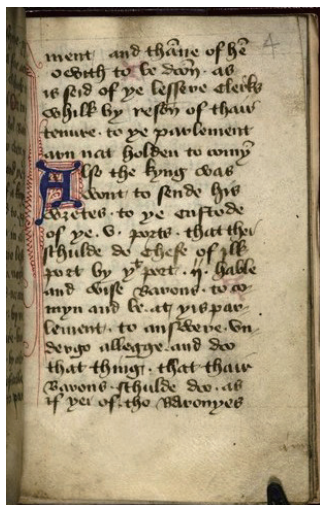 4
ment and thanne of hē
owith to be doon · as
is seid of ye lessere clerks
whilk by reson of thair
tenure · to ye parlement
arn nat holden to comyn
Also the kyng was
wont to sende his
writes · to ye custode
of ye · v · ports · that thei
schulde do chese of ilk
port by yt port · ij · hable
and wise barons · to co
myn and be · at yis par
lement · to answere · vn
dergo allegge · and doo
that thing · that thair
barons · schulde doo · as
if yei of · tho baronyes